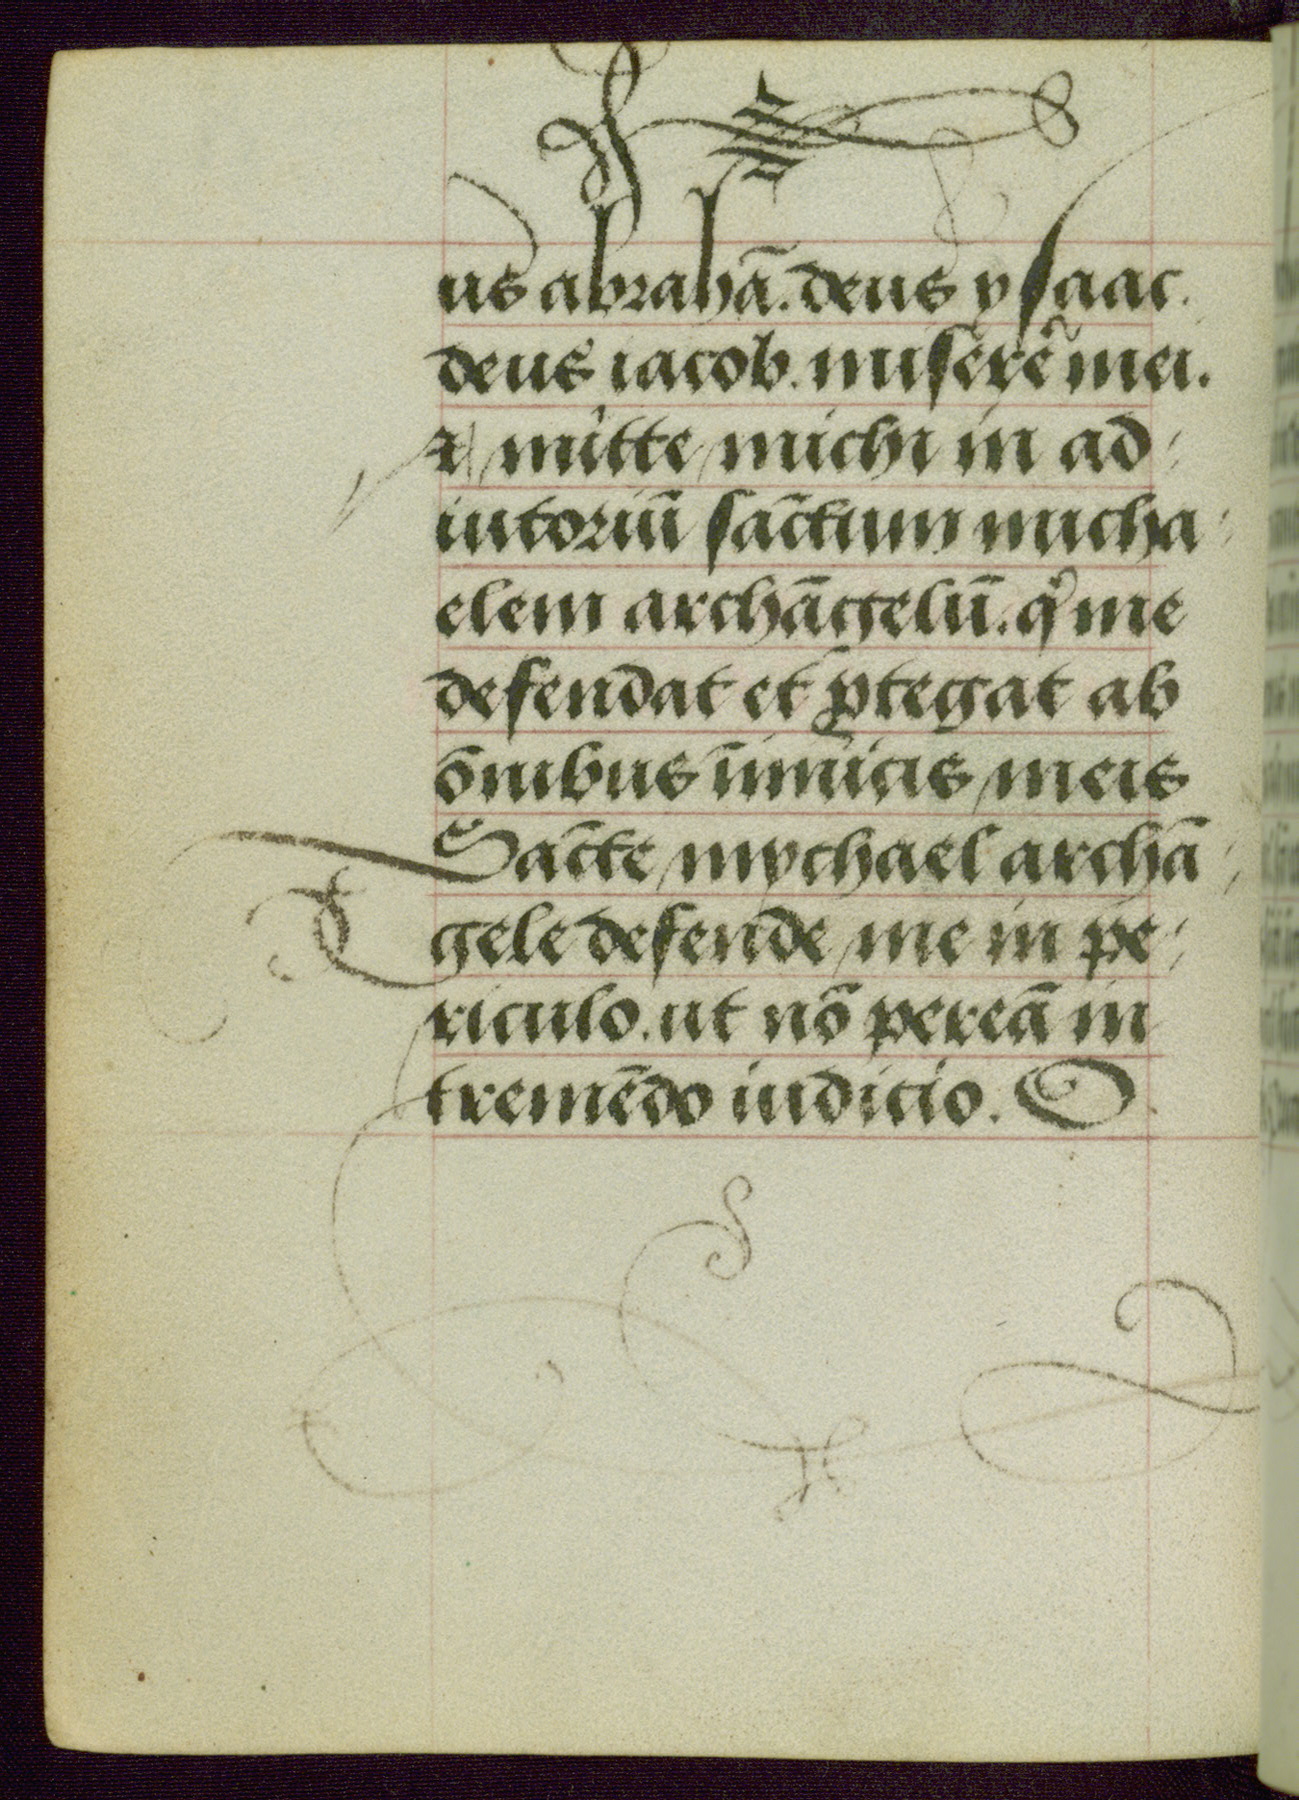 us abrahā. deus ysaac.
deus iacob. miserē mei.
⁊ mitte michi in ad
iutoriū sāctum micha
elem archāgelū. qͥ me
defendat et ꝓtegat ab
ōnibus īimicis meis
Sācte mychael archā
gele defende me in pe
riculo. ut nō pereā in
tremēdo iudicio. S